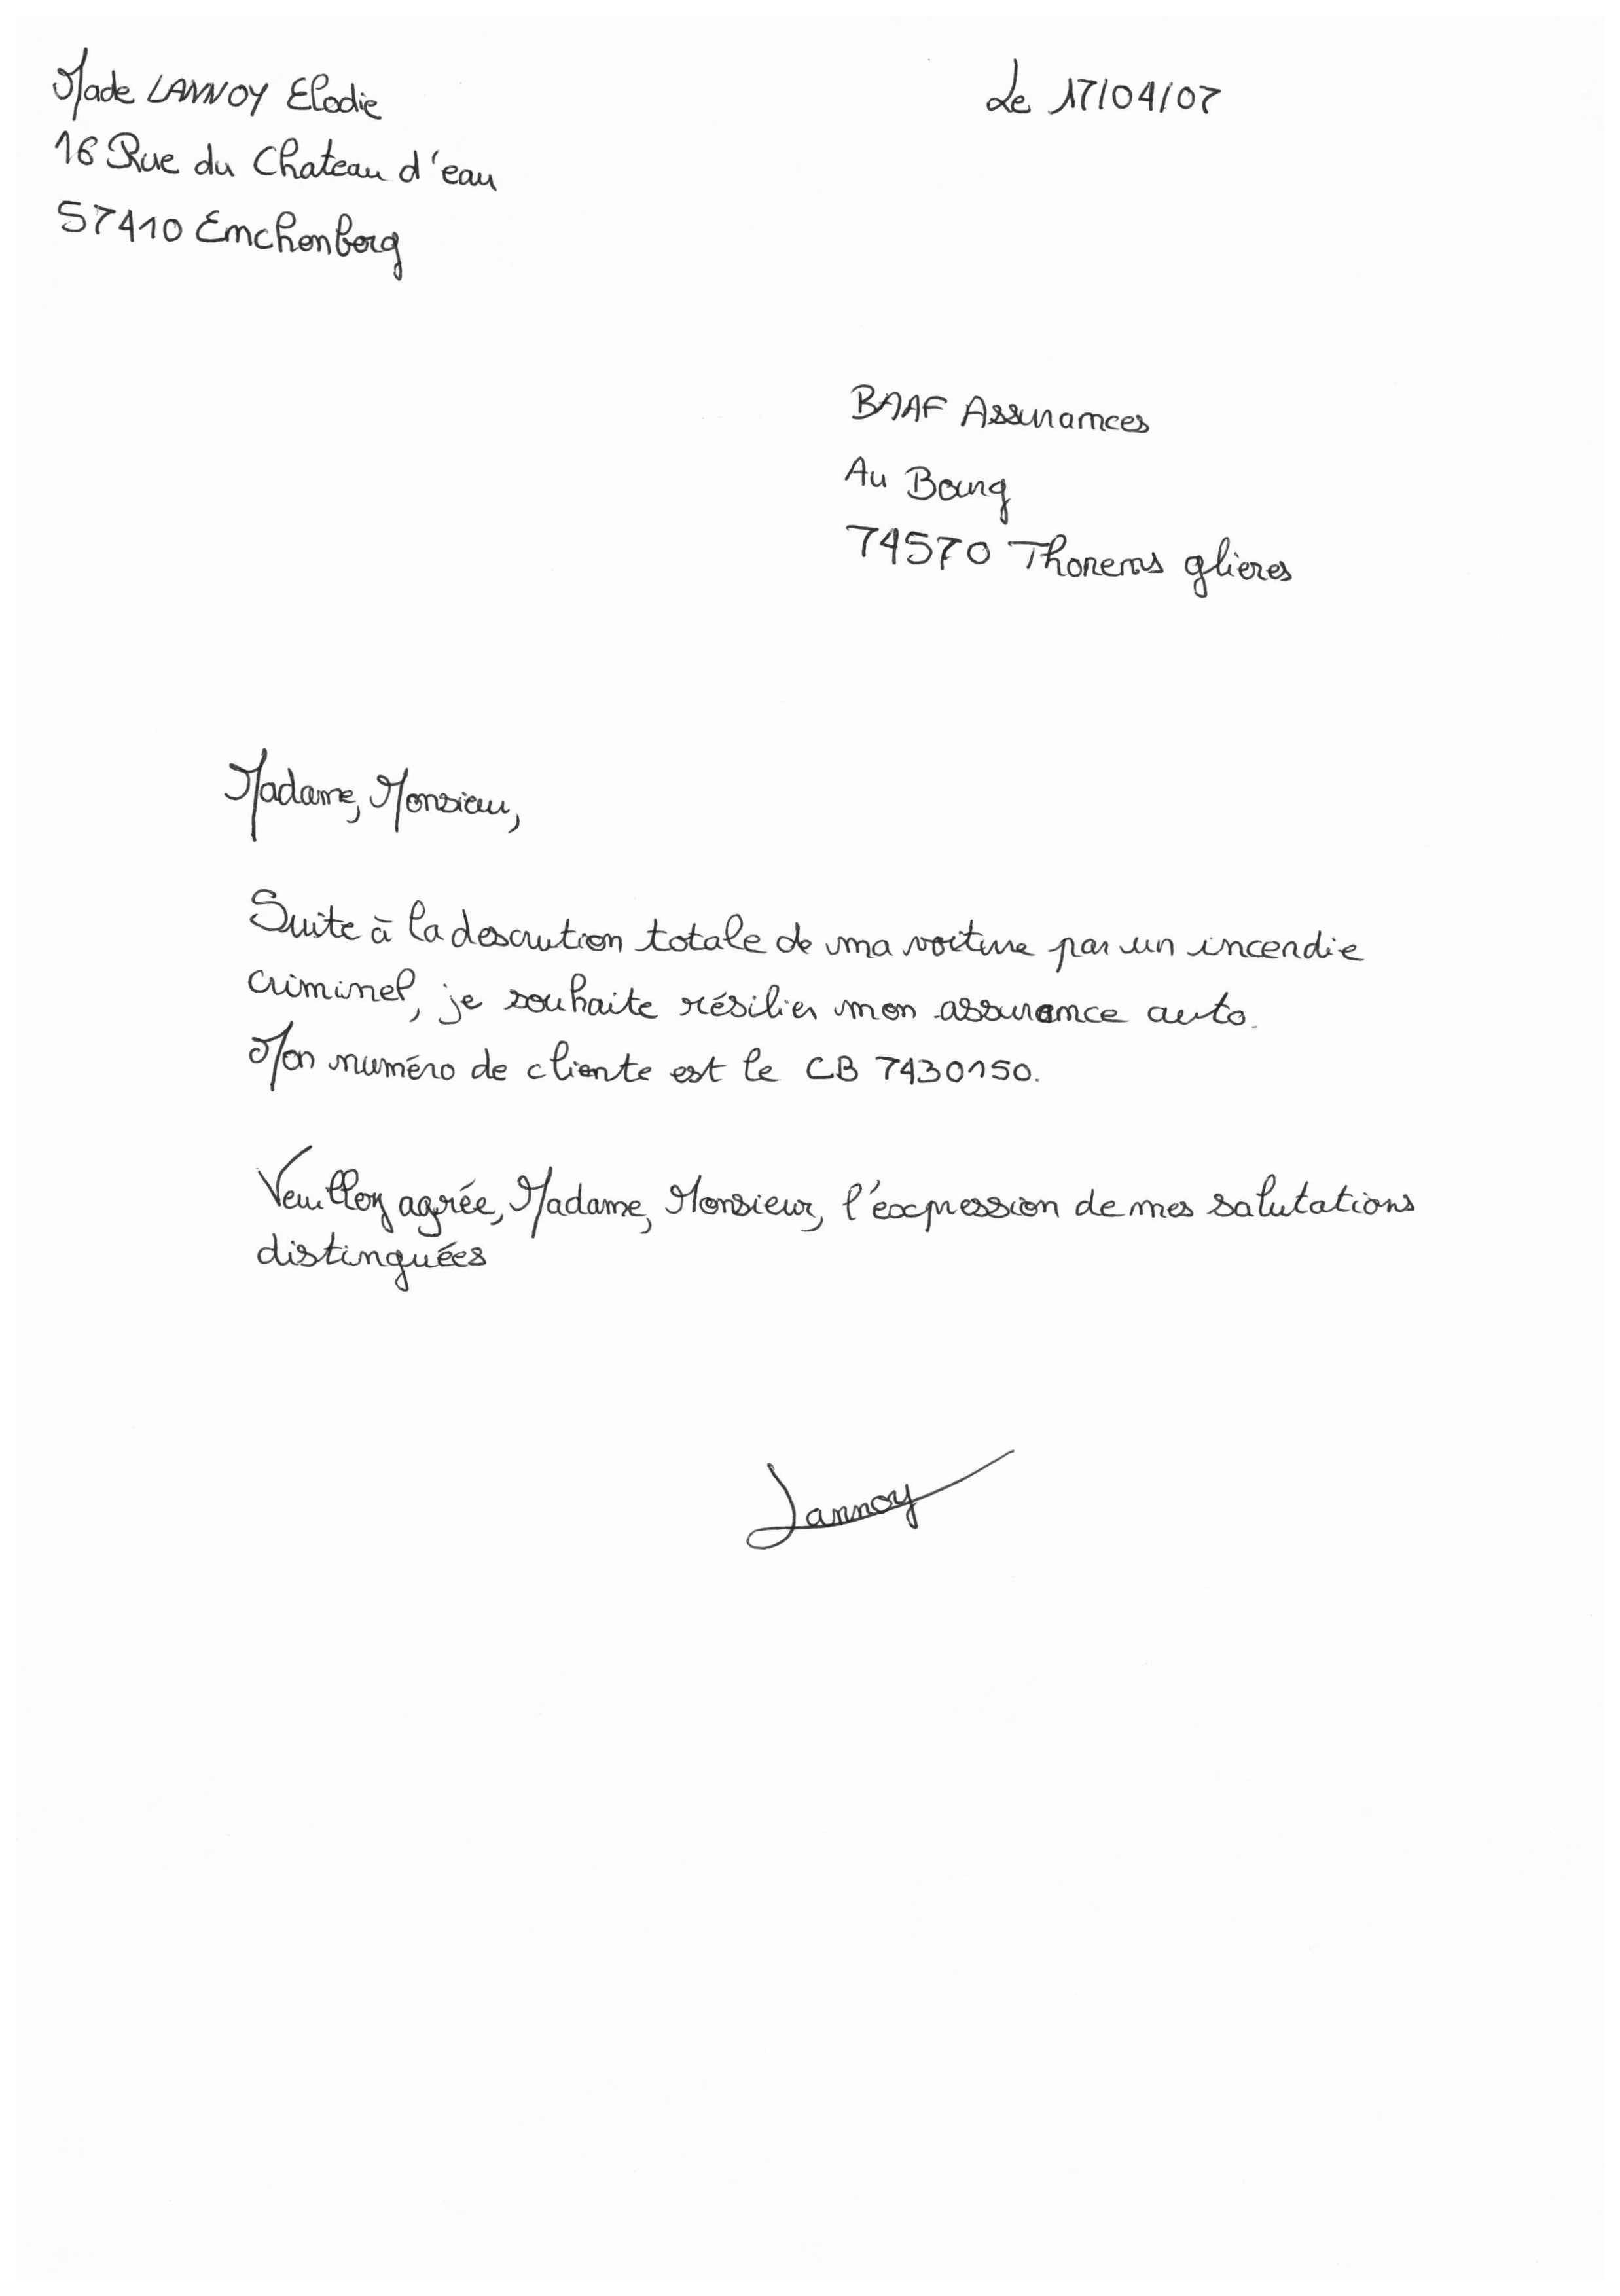 Made LANNOY Elodie
Le 17/04/07
16 Rue du Chateau d'eau
57410 Enchenberg
BAAF Assurances
Au Bourg
74570 Thorens glieres
Madame, Monsieur,
Suite à la descrution totale de ma voiture par un incendie
criminel, je souhaite résilier mon assurance auto.
Mon numéro de cliente est le CB 7430150.
Veuillez agrée, Madame, Monsieur, l'expression de mes salutations
distinguées
Lannoy